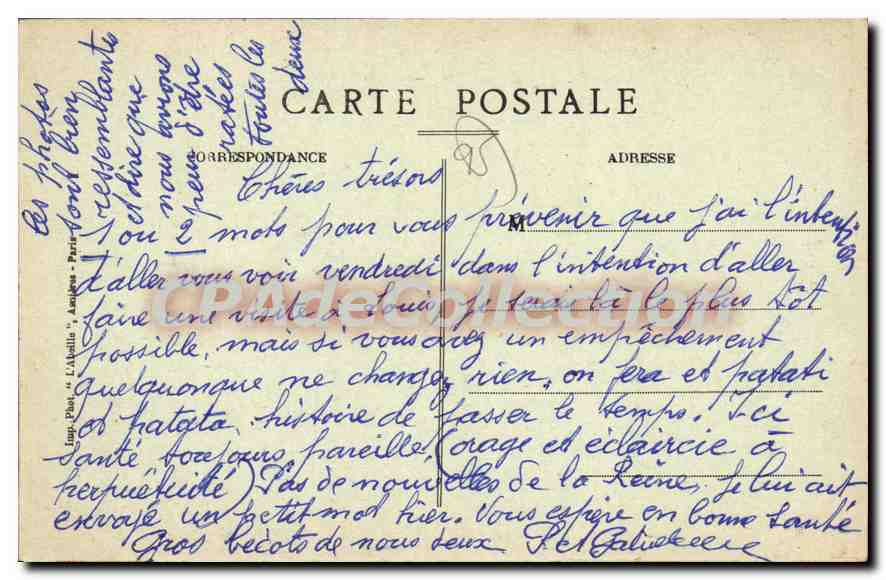 CARTE POSTALE
CORRESPONDANCE
ADRESSE
M
25
Imp. Phot. "L'Abeille", Asnières - Paris
CPA de Collection
Chères trésors
1 ou 2 mots pour vous prévenir que j'ai l'intention
d'aller vous voir vendredi dans l'intention d'aller
faire une visite à Louis je serai là le plus tôt
possible, mais si vous avez un empêchement
quelquonque ne changez rien, on fera et patati
et patata histoire de passer le temps. Ici
santé toujours pareille (orage et éclaircie à
perpétuité) Pas de nouvelles de la Reine, je lui ait
envoyé un petit mot hier. Vous espère en bonne santé
Gros bécots de nous deux
les photos
sont bien
ressemblantes
et dire que
nous avions
peur d'être
ratées
toutes les
deux